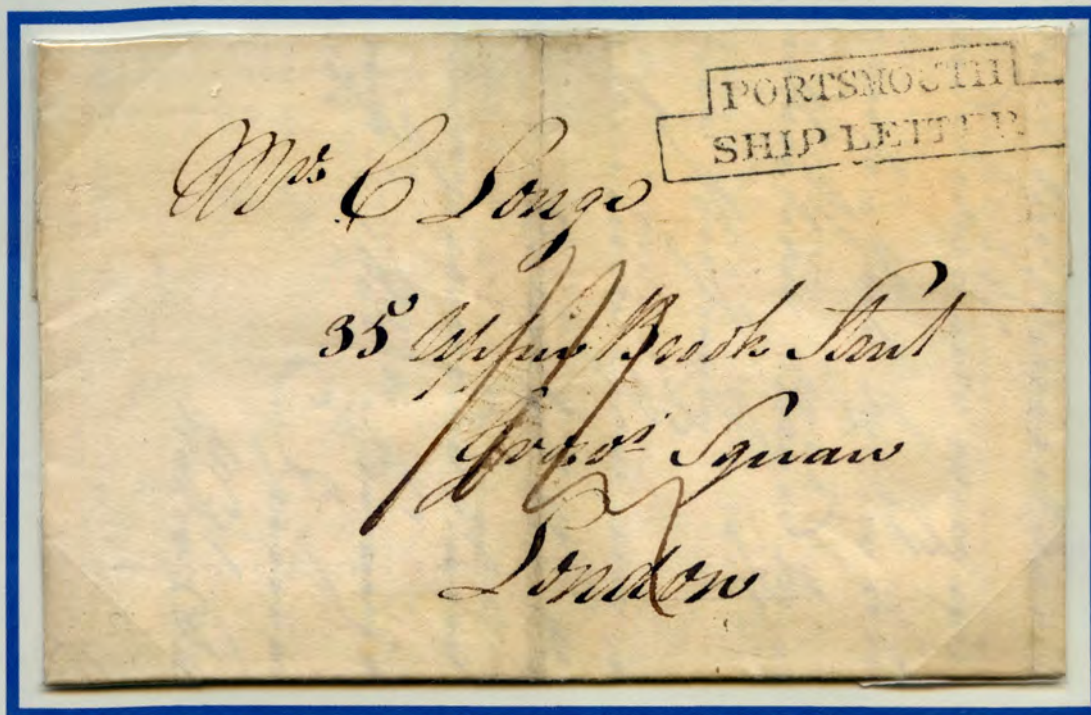 PORTSMOUTH
SHIP LETTER
Mrs C Longe
35 Upper Brook Street
Grosvr Square
London